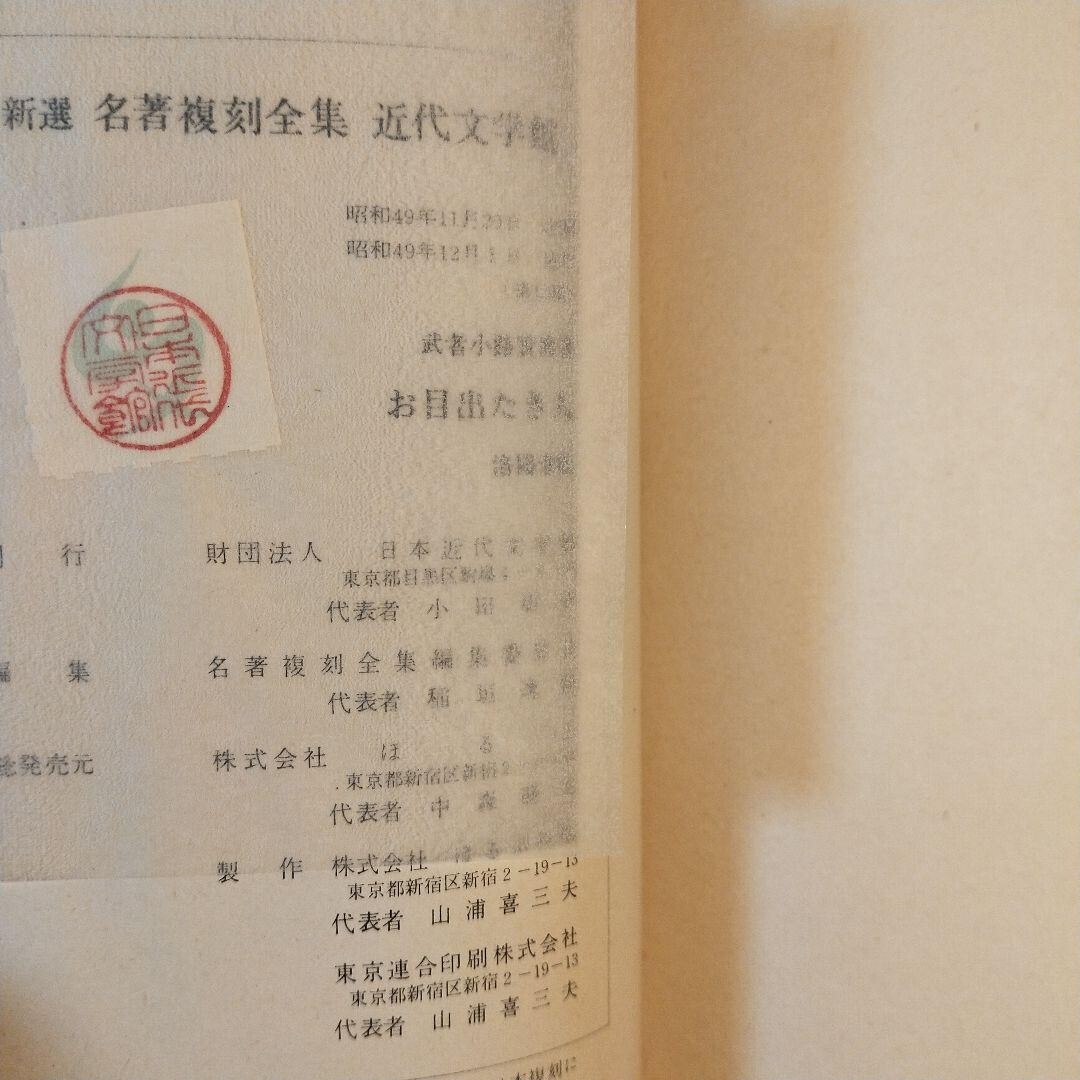 新選 名著複刻全集 近代文学館
昭和49年11月20日
昭和49年12月1日
武者小路実篤
お目出たき人
洛陽堂
行 財団法人 日本近代文学館
東京都目黒区駒場
代表者 小田
集 名著複刻全集編集委員会
代表者 稲垣
発売元 株式会社 ほるぷ
東京都新宿区新宿2
代表者 中森
製作 株式会社
東京都新宿区新宿2-19-13
代表者 山浦喜三夫
東京連合印刷株式会社
東京都新宿区新宿2-19-13
代表者 山浦喜三夫
複刻に
日本近代文学館